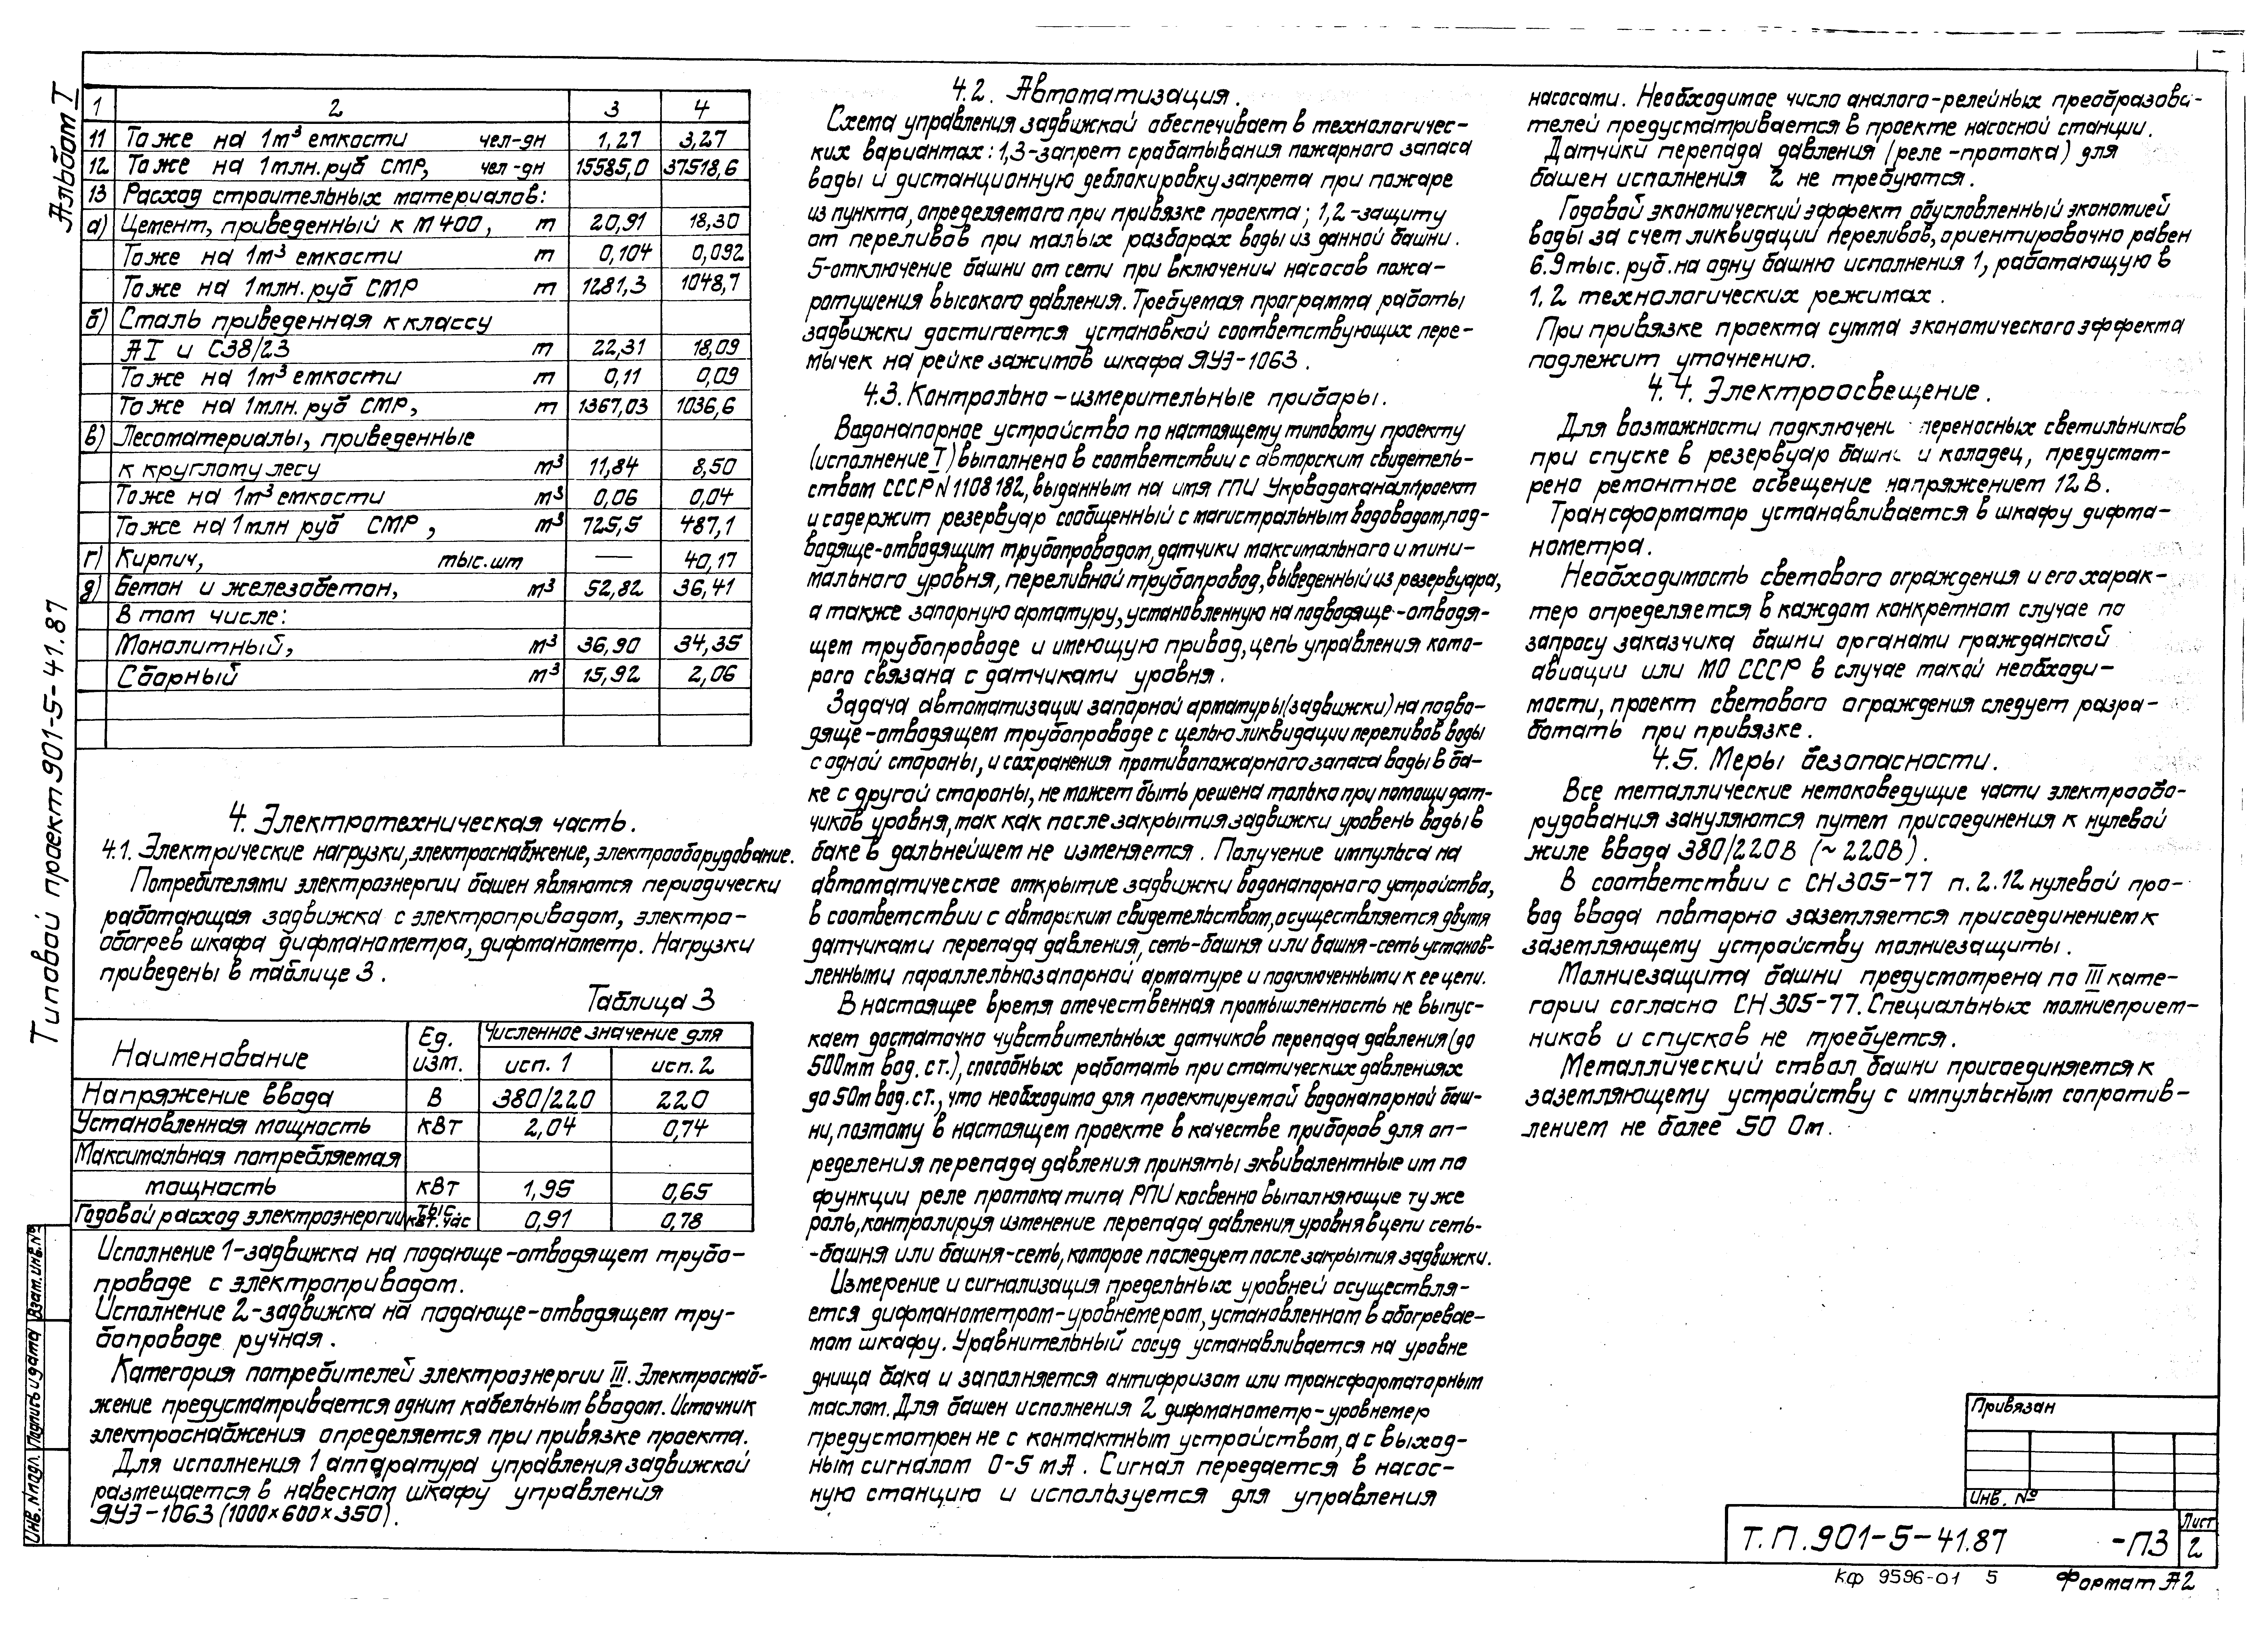 Альбом I
Типовой проект 901-5-41.87
1 2 3 4
11 То же на 1м³ емкости чел-дн 1,27 3,27
12 То же на 1млн.руб СМР, чел-дн 15585,0 37518,6
13 Расход строительных материалов:
а) Цемент, приведенный к М400, т 20,91 18,30
То же на 1м³ емкости т 0,104 0,092
То же на 1млн.руб СМР т 1281,3 1048,7
б) Сталь приведенная к классу
АI и С38/23 т 22,31 18,09
То же на 1м³ емкости т 0,11 0,09
То же на 1млн.руб СМР, т 1367,03 1036,6
в) Лесоматериалы, приведенные
к круглому лесу м³ 11,84 8,50
То же на 1м³ емкости м³ 0,06 0,04
То же на 1млн руб СМР, м³ 725,5 487,1
г) Кирпич, тыс.шт — 40,17
д) Бетон и железобетон, м³ 52,82 36,41
В том числе:
Монолитный, м³ 36,90 34,35
Сборный м³ 15,92 2,06
4. Электротехническая часть.
4.1. Электрические нагрузки, электроснабжение, электрооборудование.
Потребителями электроэнергии башен являются периодически
работающая задвижка с электроприводом, электро-
обогрев шкафа дифманометра, дифманометр. Нагрузки
приведены в таблице 3.
Таблица 3
Наименование Ед. изм. Численное значение для
исп. 1 исп. 2
Напряжение ввода В 380/220 220
Установленная мощность кВт 2,04 0,74
Максимальная потребляемая
мощность кВт 1,95 0,65
Годовой расход электроэнергии тыс. кВт.час 0,91 0,78
Исполнение 1-задвижка на подающе-отводящем трубо-
проводе с электроприводом.
Исполнение 2-задвижка на подающе-отводящем тру-
бопроводе ручная.
Категория потребителей электроэнергии III. Электроснаб-
жение предусматривается одним кабельным вводом. Источник
электроснабжения определяется при привязке проекта.
Для исполнения 1 аппаратура управления задвижкой
размещается в навесном шкафу управления
ЯУЭ-1063 (1000×600×350).
4.2. Автоматизация.
Схема управления задвижкой обеспечивает в технологичес-
ких вариантах: 1,3-запрет срабатывания пожарного запаса
воды и дистанционную деблокировку запрета при пожаре
из пункта, определяемого при привязке проекта; 1,2-защиту
от переливов при малых разборах воды из данной башни.
5-отключение башни от сети при включении насосов пожа-
ротушения высокого давления. Требуемая программа работы
задвижки достигается установкой соответствующих пере-
мычек на рейке зажимов шкафа ЯУЭ-1063.
4.3. Контрольно-измерительные приборы.
Водонапорное устройство по настоящему типовому проекту
(исполнение I) выполнено в соответствии с авторским свидетель-
ством СССР N 1108182, выданным на имя ГПИ Укрводоканалпроект
и содержит резервуар сообщенный с магистральным водоводом, под-
водяще-отводящим трубопроводом, датчики максимального и мини-
мального уровня, переливной трубопровод, выведенный из резервуара,
а также запорную арматуру, установленную на подводяще-отводя-
щем трубопроводе и имеющую привод, цепь управления кото-
рого связана с датчиками уровня.
Задача автоматизации запорной арматуры (задвижки) на подво-
дяще-отводящем трубопроводе с целью ликвидации переливов воды
с одной стороны, и сохранения противопожарного запаса воды в ба-
ке с другой стороны, не может быть решена только при помощи дат-
чиков уровня, так как после закрытия задвижки уровень воды в
баке в дальнейшем не изменяется. Получение импульса на
автоматическое открытие задвижки водонапорного устройства,
в соответствии с авторским свидетельством, осуществляется двумя
датчиками перепада давления, сеть-башня или башня-сеть установ-
ленными параллельно запорной арматуре и подключенными к ее цепи.
В настоящее время отечественная промышленность не выпус-
кает достаточно чувствительных датчиков перепада давления (до
500мм вод. ст.), способных работать при статических давлениях
до 50м вод. ст., что необходимо для проектируемой водонапорной баш-
ни, поэтому в настоящем проекте в качестве приборов для оп-
ределения перепада давления приняты эквивалентные им по
функции реле протока типа РПИ косвенно выполняющие ту же
роль, контролируя изменение перепада давления уровня в цепи сеть-
-башня или башня-сеть, которое последует после закрытия задвижки.
Измерение и сигнализация предельных уровней осуществля-
ется дифманометром-уровнемером, установленном в обогревае-
мом шкафу. Уравнительный сосуд устанавливается на уровне
днища бака и заполняется антифризом или трансформаторным
маслом. Для башен исполнения 2 дифманометр-уровнемер
предусмотрен не с контактным устройством, а с выход-
ным сигналом 0-5 мА. Сигнал передается в насос-
ную станцию и используется для управления
насосами. Необходимое число аналого-релейных преобразова-
телей предусматривается в проекте насосной станции.
Датчики перепада давления (реле-протока) для
башен исполнения 2 не требуются.
Годовой экономический эффект обусловленный экономией
воды за счет ликвидации переливов, ориентировочно равен
6.9 тыс. руб. на одну башню исполнения 1, работающую в
1,2 технологических режимах.
При привязке проекта сумма экономического эффекта
подлежит уточнению.
4.4. Электроосвещение.
Для возможности подключени переносных светильников
при спуске в резервуар башни и колодец, предусмот-
рено ремонтное освещение напряжением 12 В.
Трансформатор устанавливается в шкафу дифма-
нометра.
Необходимость светового ограждения и его харак-
тер определяется в каждом конкретном случае по
запросу заказчика башни органами гражданской
авиации или МО СССР в случае такой необходи-
мости, проект светового ограждения следует разра-
ботать при привязке.
4.5. Меры безопасности.
Все металлические нетоковедущие части электрообо-
рудования зануляются путем присоединения к нулевой
жиле ввода 380/220В (~220В).
В соответствии с СН 305-77 п. 2.12 нулевой про-
вод ввода повторно заземляется присоединением к
заземляющему устройству молниезащиты.
Молниезащита башни предусмотрена по III кате-
гории согласно СН 305-77. Специальных молниеприем-
ников и спусков не требуется.
Металлический ствол башни присоединяется к
заземляющему устройству с импульсным сопротив-
лением не более 50 Ом.
Инв. N подл. Подпись и дата Взам. инв. N
Привязан
Инв. №
Т.П. 901-5-41.87 -ПЗ Лист 2
КФ 9596-01 5 Формат А2